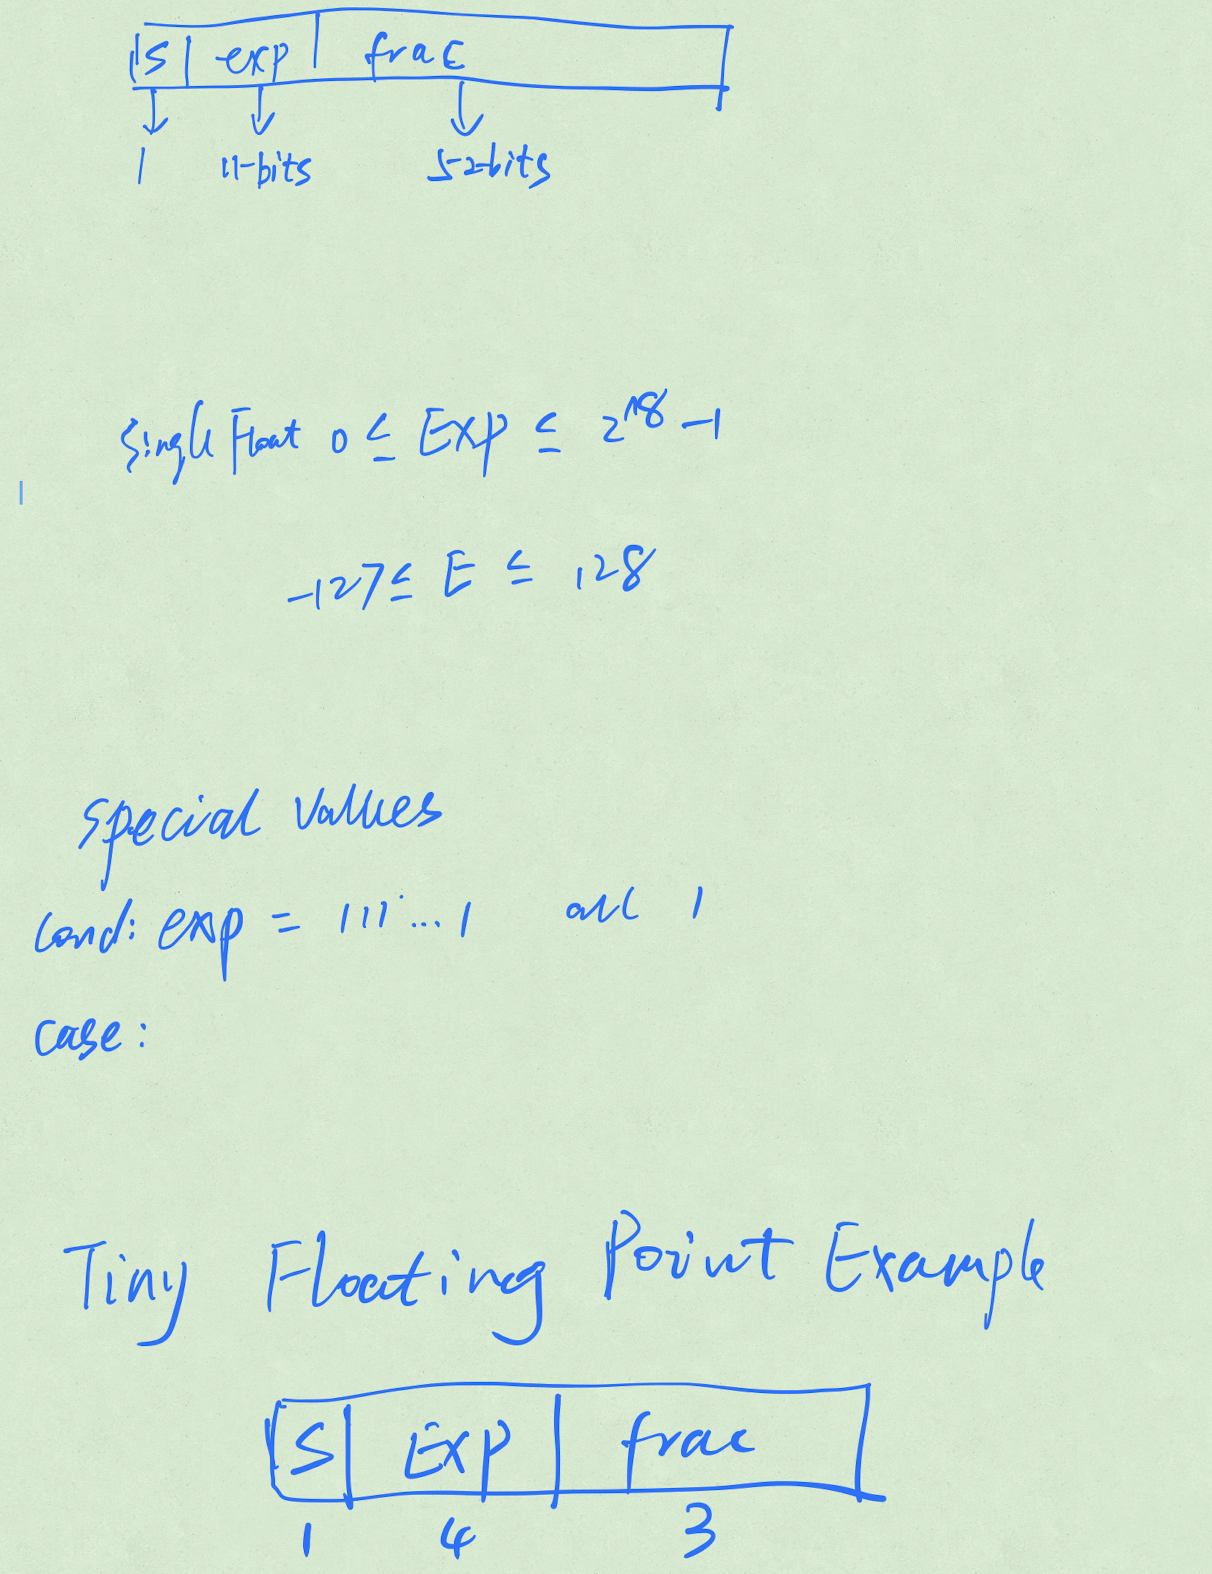 S exp frac
1 11-bits 52-bits
Single Float 0 ≤ Exp ≤ 2^8 -1
-127 ≤ E ≤ 128
Special Values
Cond: exp = 111...1 all 1
Case:
Tiny Floating Point Example
S Exp frac
1 4 3